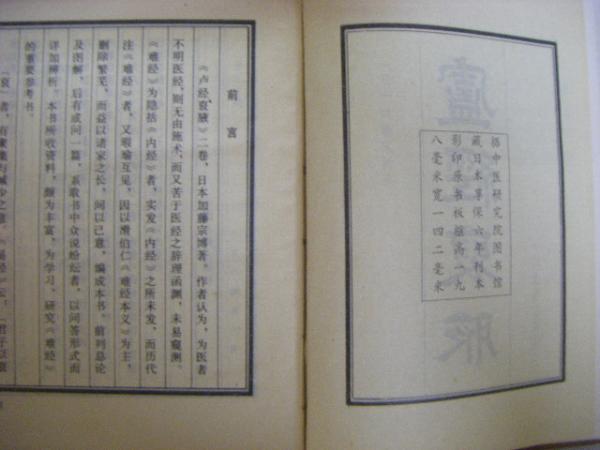 据中医研究院图书馆
藏日本享保六年刊本
影印原书板框高一九
八毫米宽一四二毫米
前言
《卢经裒腋》二卷，日本加藤宗博著。作者认为，为医者
不明医经，则无由施术，而又苦于医经之辞理函渊，未易窥测。
《难经》为隐括《内经》者，实发《内经》之所未发，而历代
注《难经》者，又瑕瑜互见，因以滑伯仁《难经本义》为主，
删除繁芜，而益以诸家之长，间以己意，编成本书。前列总论
及图解，后有或问一篇，系取书中众说纷纭者，以问答形式而
详加辨析。本书所收资料，颇为丰富，为学习、研究《难经》
的重要参考书。
“裒”者，有裒集与减少之意。《易经》云：“君子以裒